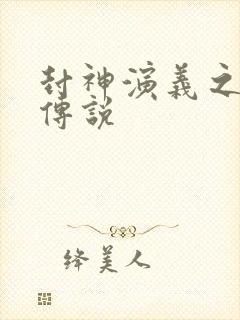 封神演義之
傳說
絳美人